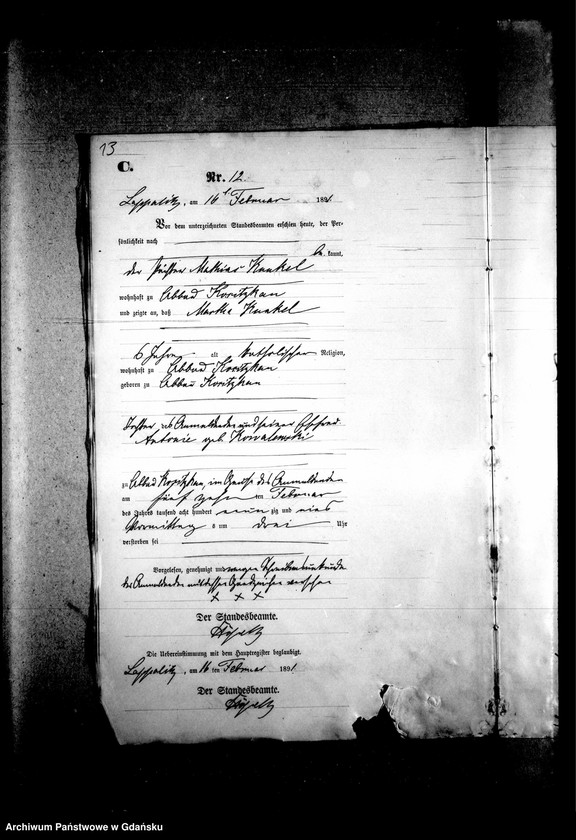 13
C.
Nr. 12.
am 16 Februar 1891.
Vor dem unterzeichneten Standesbeamten erschien heute, der Per-
sönlichkeit nach
kannt,
der Mathias Kunkel
wohnhaft zu Abbau
und zeigte an, daß Martha Kunkel
6 Jahre alt katholischer Religion,
wohnhaft zu Abbau
geboren zu Abbau
Tochter des Anmeldenden und seiner Ehefrau
Antonie geb Kowalewski
zu Abbau im Hause des Anmeldenden
am fünf zehn ten Februar
des Jahrs tausend acht hundert neun zig und eins
Vormittag s um drei Uhr
verstorben sei
Vorgelesen, genehmigt und wegen Schreibensunkunde
des Anmeldenden mit dessen Handzeichen versehen
x x x
Der Standesbeamte.
Die Uebereinstimmung mit dem Hauptregister beglaubigt.
am 16 ten Februar 1891.
Der Standesbeamte.
Archiwum Państwowe w Gdańsku